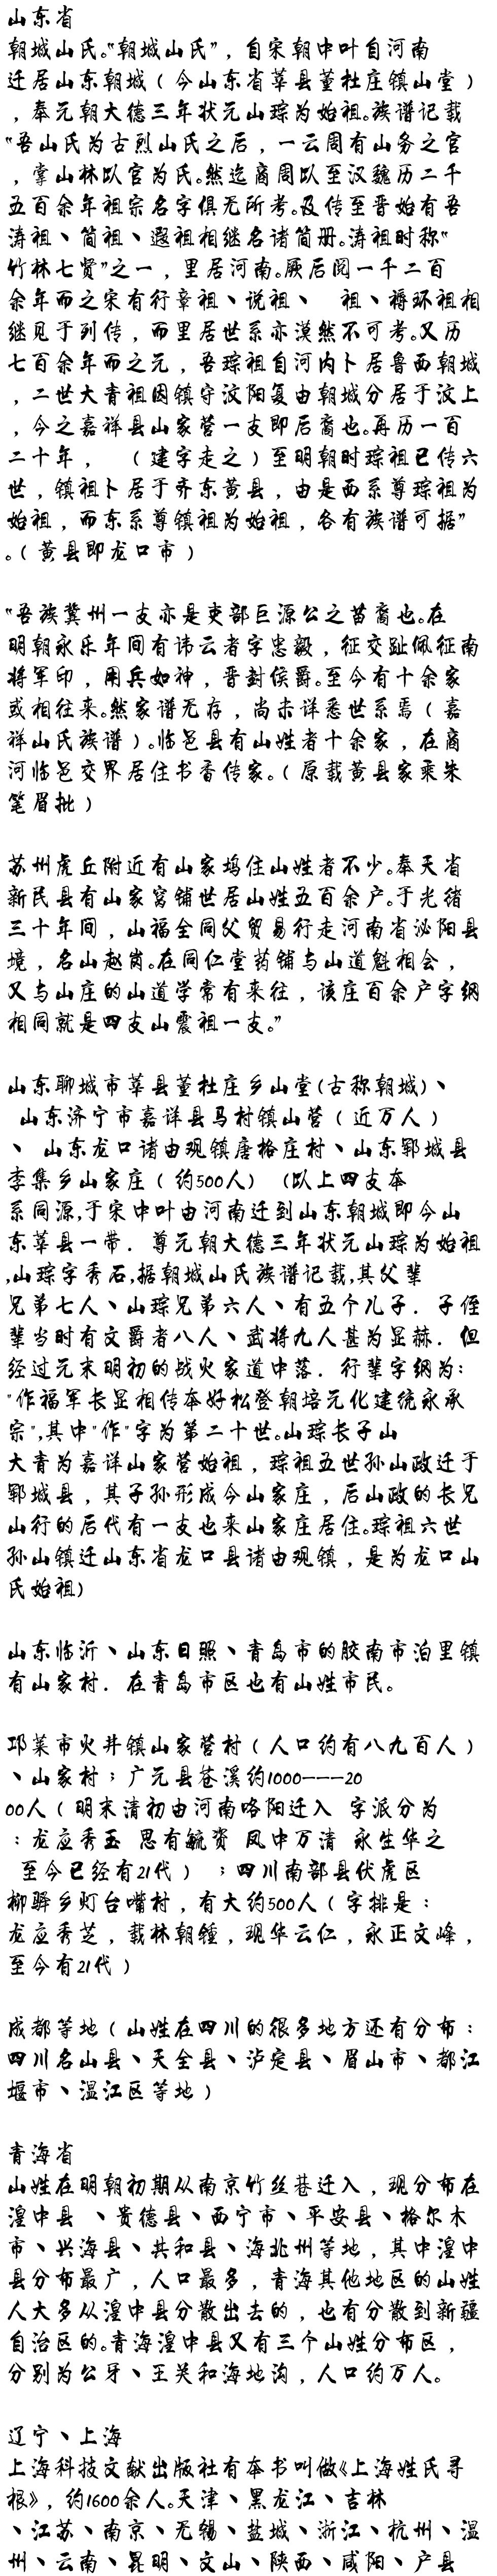 山东省
朝城山氏。“朝城山氏”，自宋朝中叶自河南
迁居山东朝城（今山东省莘县董杜庄镇山堂）
，奉元朝大德三年状元山琮为始祖。族谱记载
“吾山氏为古烈山氏之后，一云周有山务之官
，掌山林以官为氏。然迄商周以至汉魏历二千
五百余年祖宗名字俱无所考。及传至晋始有吾
涛祖、简祖、遐祖相继名诸简册。涛祖时称“
竹林七贤”之一，里居河南。厥后阅一千二百
余年而之宋有行章祖、说祖、　祖、褥环祖相
继见于列传，而里居世系亦漠然不可考。又历
七百余年而之元，吾琮祖自河内卜居鲁西朝城
，二世大青祖因镇守汶阳复由朝城分居于汶上
，今之嘉祥县山家营一支即后裔也。再历一百
二十年，　（建字走之）至明朝时琮祖已传六
世，镇祖卜居于齐东黄县，由是西系尊琮祖为
始祖，而东系尊镇祖为始祖，各有族谱可据”
。（黄县即龙口市）
“吾族冀州一支亦是吏部巨源公之苗裔也。在
明朝永乐年间有讳云者字忠毅，征交趾佩征南
将军印，用兵如神，晋封侯爵。至今有十余家
或相往来。然家谱无存，尚未详悉世系焉（嘉
祥山氏族谱）。临邑县有山姓者十余家，在商
河临邑交界居住书香传家。（原载黄县家乘朱
笔眉批）
苏州虎丘附近有山家坞住山姓者不少。奉天省
新民县有山家窝铺世居山姓五百余户。于光绪
三十年间，山福全同父贸易行走河南省泌阳县
境，名山赵岗。在同仁堂药铺与山道魁相会，
又与山庄的山道学常有来往，该庄百余户字纲
相同就是四支山震祖一支。”
山东聊城市莘县董杜庄乡山堂(古称朝城)、
山东济宁市嘉详县马村镇山营（近万人）
、 山东龙口诸由观镇唐格庄村、山东郓城县
李集乡山家庄（约500人） (以上四支本
系同源,于宋中叶由河南迁到山东朝城即今山
东莘县一带．尊元朝大德三年状元山琮为始祖
,山琮字秀石,据朝城山氏族谱记载,其父辈
兄弟七人、山琮兄弟六人、有五个儿子．子侄
辈当时有文爵者八人、武将九人甚为显赫．但
经过元末明初的战火家道中落．行辈字纲为:
"作福军长显相传本好松登朝培元化建统永承
宗",其中"作"字为第二十世。山琮长子山
大青为嘉详山家营始祖，琮祖五世孙山政迁于
郓城县，其子孙形成今山家庄，后山政的长兄
山行的后代有一支也来山家庄居住。琮祖六世
孙山镇迁山东省龙口县诸由观镇，是为龙口山
氏始祖)
山东临沂、山东日照、青岛市的胶南市泊里镇
有山家村．在青岛市区也有山姓市民。
邛莱市火井镇山家营村（人口约有八九百人）
、山家村；广元县苍溪约1000---20
00人（明末清初由河南咯阳迁入 字派分为
：龙应秀玉 思有毓资 凤中万清 永生华之
至今已经有21代） ；四川南部县伏虎区
柳驿乡灯台嘴村，有大约500人（字排是：
龙应秀芝，载林朝锺，现华云仁，永正文峰，
至今有21代）
成都等地（山姓在四川的很多地方还有分布：
四川名山县、天全县、泸定县、眉山市、都江
堰市、温江区等地）
青海省
山姓在明朝初期从南京竹丝巷迁入，现分布在
湟中县 、贵德县、西宁市、平安县、格尔木
市、兴海县、共和县、海北州等地，其中湟中
县分布最广，人口最多，青海其他地区的山姓
人大多从湟中县分散出去的，也有分散到新疆
自治区的。青海湟中县又有三个山姓分布区，
分别为公牙、王关和海地沟，人口约万人。
辽宁、上海
上海科技文献出版社有本书叫做《上海姓氏寻
根》，约1600余人。天津、黑龙江、吉林
、江苏、南京、无锡、盐城、浙江、杭州、温
州、云南、昆明、文山、陕西、咸阳、户县